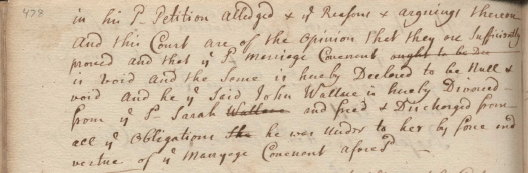 478
in his P. Petition alledged & ye Reasons & arguings thereon
And this Court are of the Opinion that they are Sufficiently
proved and that ye sd Marriage Covenant ought to be Dec
is void And the Same is hereby Declared to be Null &
void And he ye Said John Wallace is hereby Divorced
from ye sd Sarah Wallace and freed & Discharged from
all ye Obligations the he was under to her by force and
vertue of ye Marryage Covenant aforesd